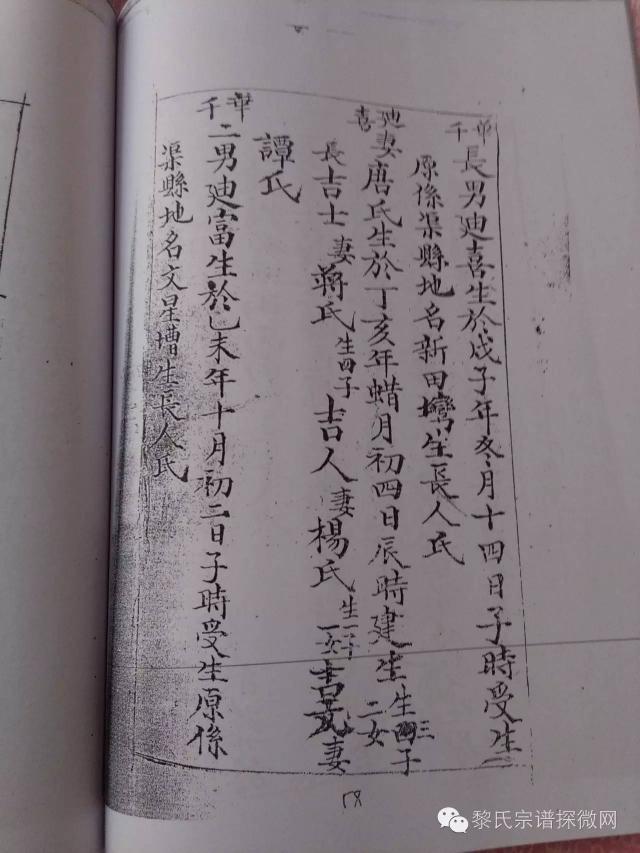 千華長男廸喜生於戊子年冬月十四日子時受生
原係渠縣地名新田灣生長人氏
廸喜妻唐氏生於丁亥年蜡月初四日辰時建生生三子二女
長吉士妻蔣氏生四子吉人妻楊氏生一子一女吉妻
譚氏
千華二男廸富生於己未年十月初二日子時受生原係
渠縣地名文星壋生長人氏
黎氏宗谱探微网